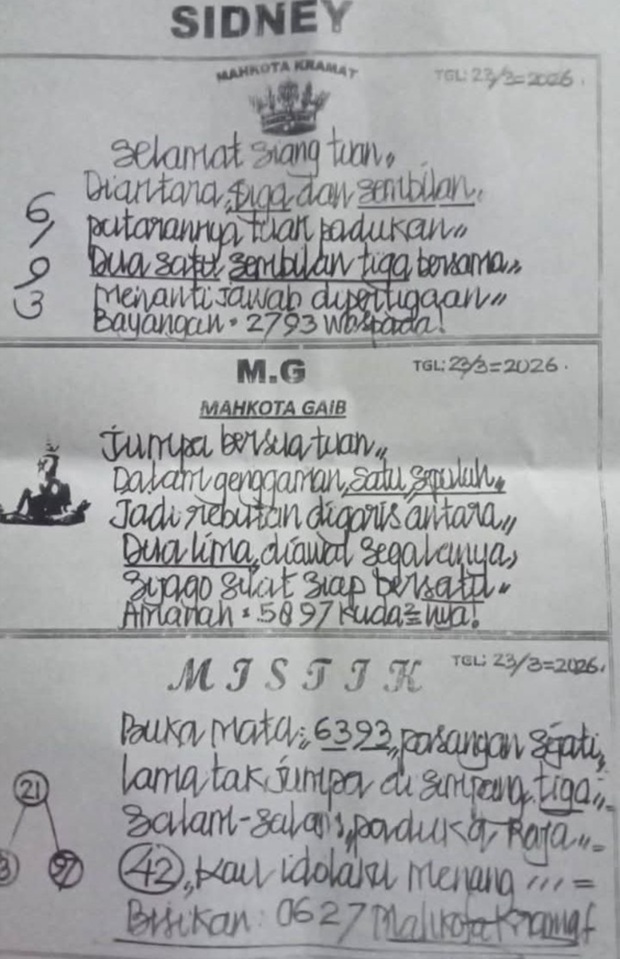 SIDNEY
MAHKOTA KRAMAT
TGL: 23/3=2026.
Selamat siang tuan,
Diantara, tiga dan sembilan,
6/ putarannya tuan padukan,,
9 Dua satu, sembilan tiga bersama,,
3 Menanti jawab dipertigaan,,
Bayangan = 2793 waspada!
M.G
TGL: 23/3=2026.
MAHKOTA GAIB
Jumpa bersua tuan,,
Dalam genggaman, satu, sepuluh,,
Jadi rebutan digaris antara,,
Dua lima, diawal segalanya,
Sijago silat siap bersatu,,
Amanah = 5897 Kuda=nya!
MISTIK
TGL: 23/3=2026.
Buka mata,, 6393,, pasangan sejati,,
lama tak jumpa di simpang tiga,,
21
Salam-salam, paduka Raja,,=
97
42,, kau idolaku menang ,,, =
Bisikan: 0627 Mahkota Kramat